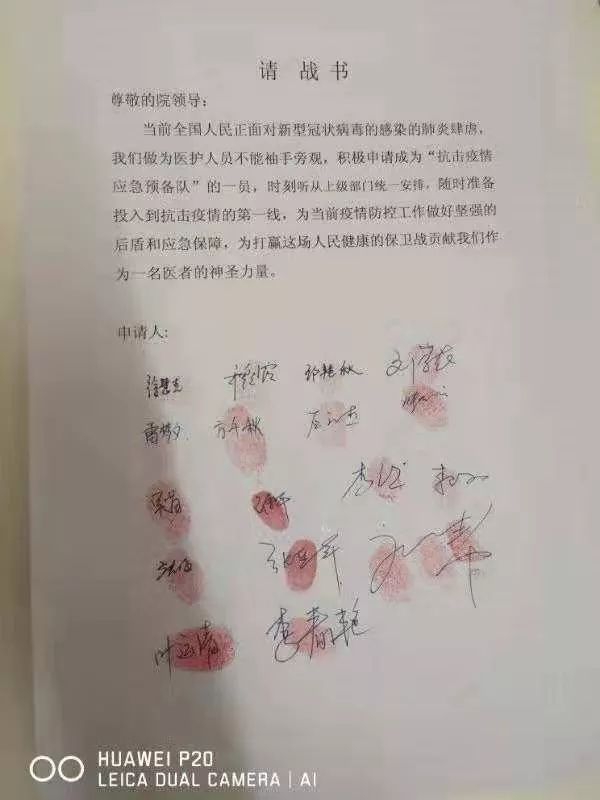 请 战 书
尊敬的院领导：
当前全国人民正面对新型冠状病毒的感染的肺炎肆虐，
我们做为医护人员不能袖手旁观，积极申请成为“抗击疫情
应急预备队”的一员，时刻听从上级部门统一安排，随时准备
投入到抗击疫情的第一线，为当前疫情防控工作做好坚强的
后盾和应急保障，为打赢这场人民健康的保卫战贡献我们作
为一名医者的神圣力量。
申请人：
邓艳秋
雷梦夕 方午秋
李青艳
HUAWEI P20
LEICA DUAL CAMERA | AI